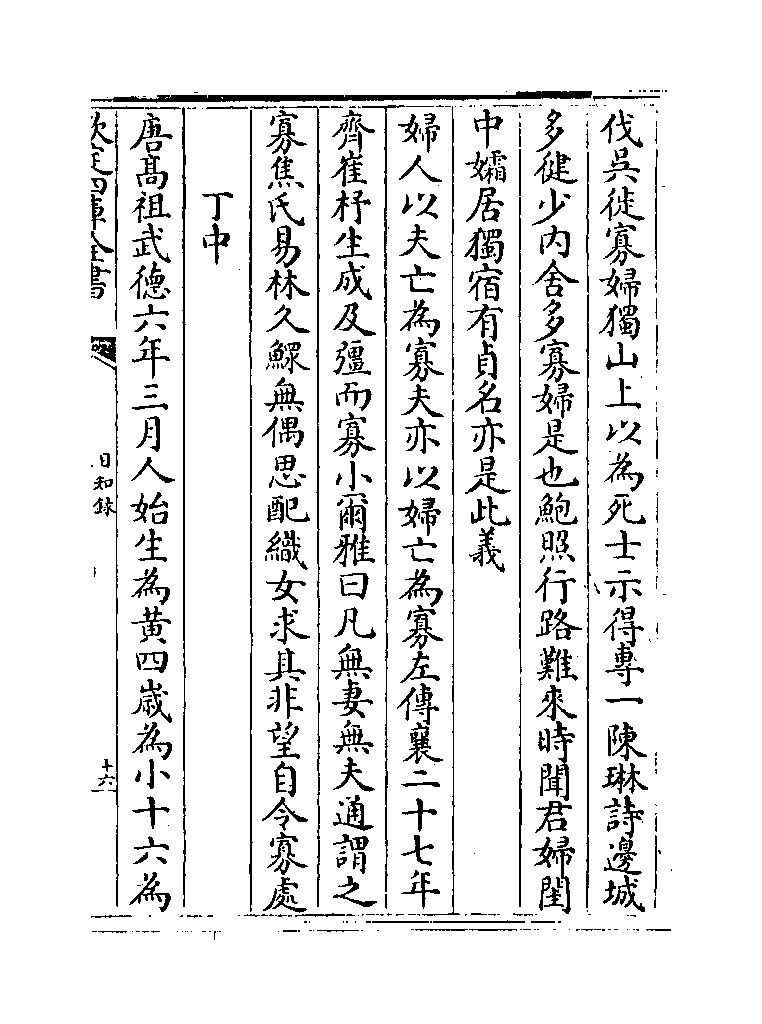 伐吳徙寡婦獨山上以為死士示得專一陳琳詩邊城
多健少内舍多寡婦是也鮑照行路難來時聞君婦閨
中孀居獨宿有貞名亦是此義
婦人以夫亡為寡夫亦以婦亡為寡左傳襄二十七年
齊崔杼生成及彊而寡小爾雅曰凡無妻無夫通謂之
寡焦氏易林久鰥無偶思配織女求其非望自令寡處
丁中
唐髙祖武德六年三月人始生為黄四歲為小十六為
欽定四庫全書
日知錄
十六